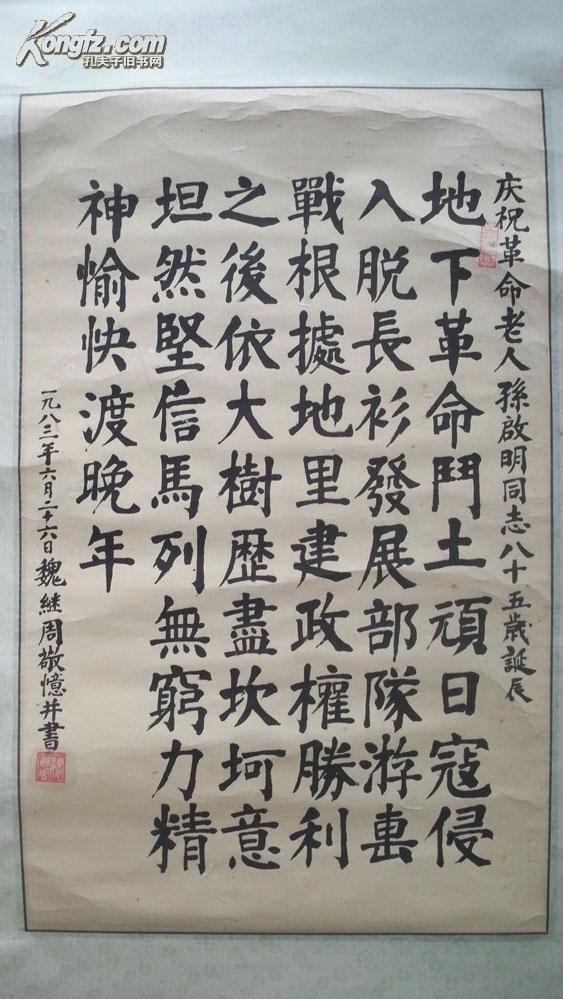 Kongfz.com
孔夫子旧书网
庆祝革命老人孫啟明同志八十五歳誕辰
地下革命鬥土頑日寇侵
入脱長衫發展部隊游击
戰根據地里建政權勝利
之後依大樹歴盡坎坷意
坦然堅信馬列無窮力精
神愉快渡晚年
一九八三年六月二十六日魏継周敬憶并書